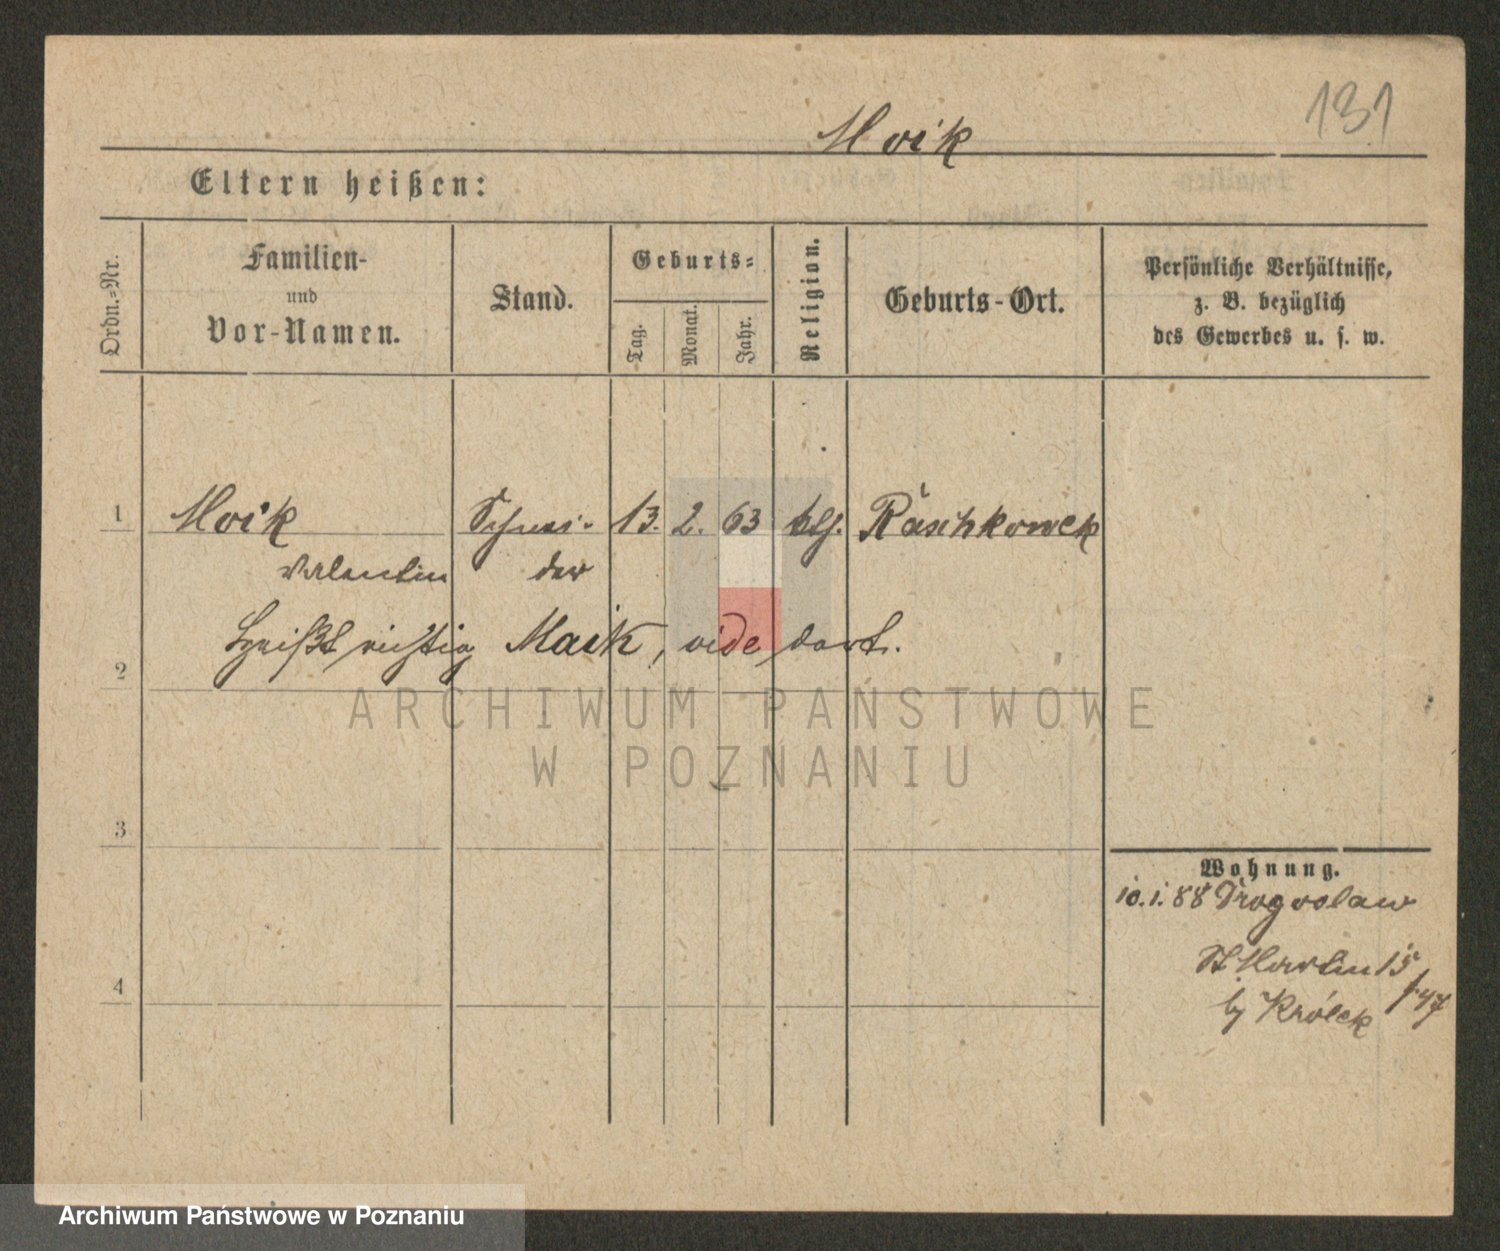 131
Moik
Eltern heißen:
Ordn.-Nr.
Familien-
und
Vor-Namen.
Stand.
Geburts-
Tag.
Monat.
Jahr.
Religion.
Geburts-Ort.
Persönliche Verhältnisse,
z. B. bezüglich
des Gewerbes u. s. w.
1 Moik Schnei- 13. 2. 63 kth. Raschkowek
Valentin der
heißt richtig Maik, vide dort.
2
3
4
Wohnung.
10.1.88
St Martin 15
by Królek
ARCHIWUM PAŃSTWOWE
W POZNANIU
Archiwum Państwowe w Poznaniu